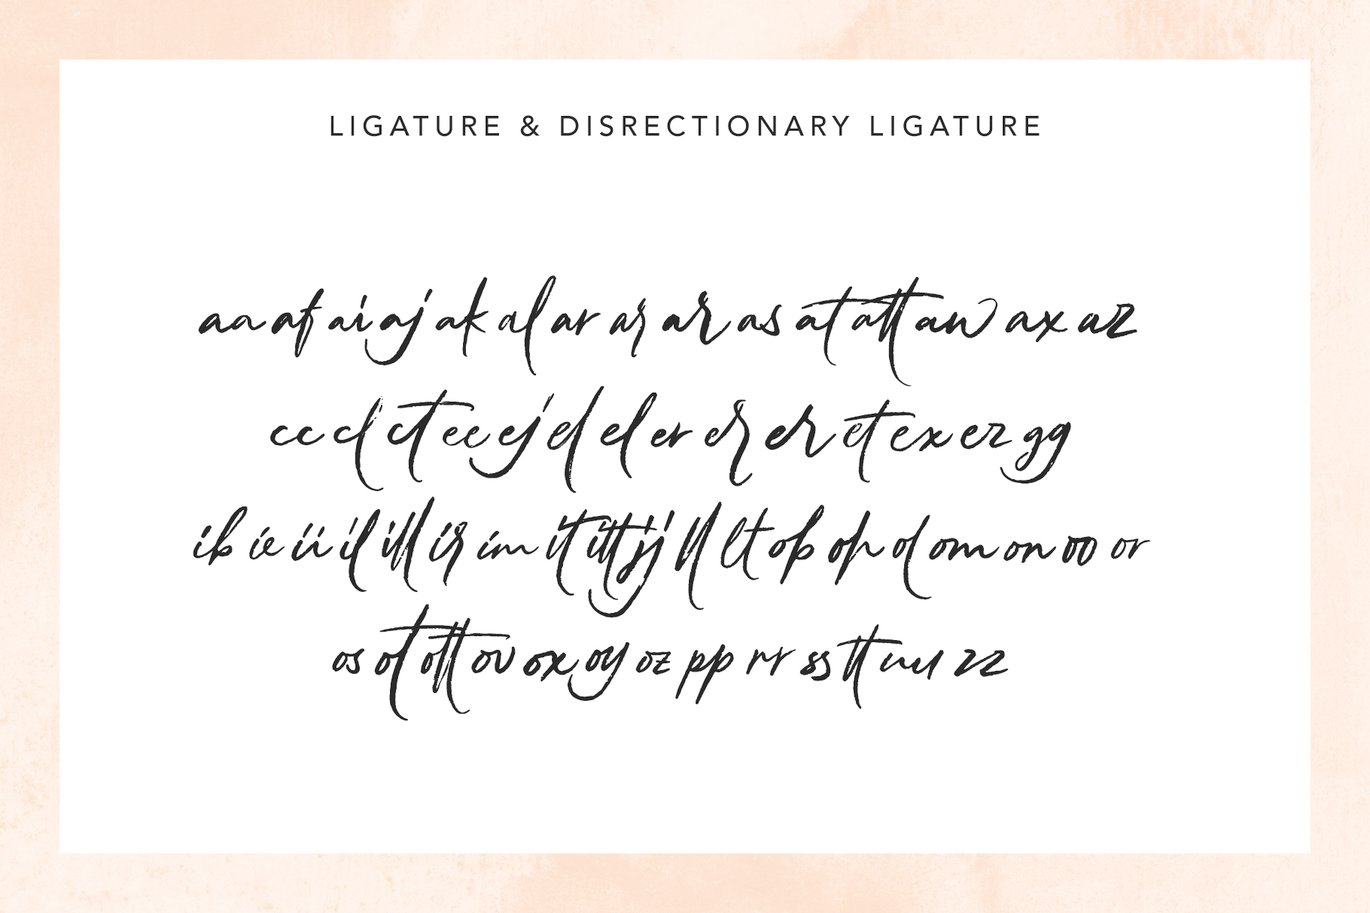 LIGATURE & DISRECTIONARY LIGATURE
aa af ai aj ak al ar ar ar as at att aw ax az
cc cl ct ee ej el el er er er et ex ez gg
ib ie ii il ill ir im it itt jj ll lt ob oh ol om on oo or
os ot ott ov ox oy oz pp rr ss tt uu zz